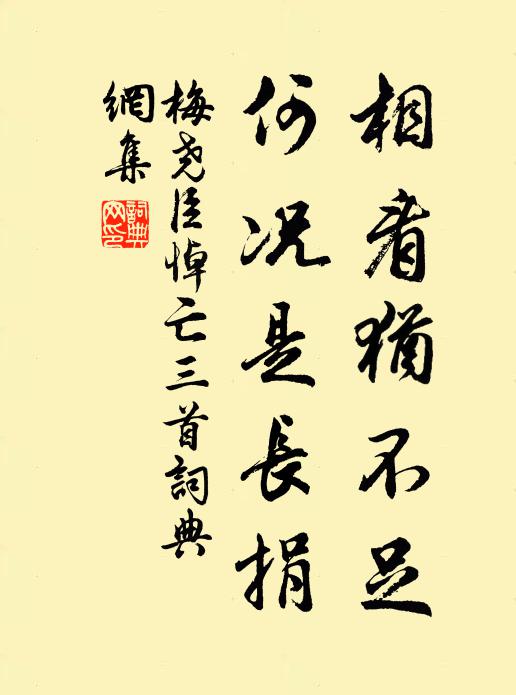 相看猶不足
何況是長捐
梅堯臣悼亡三首詞典
網集
詞典
网印